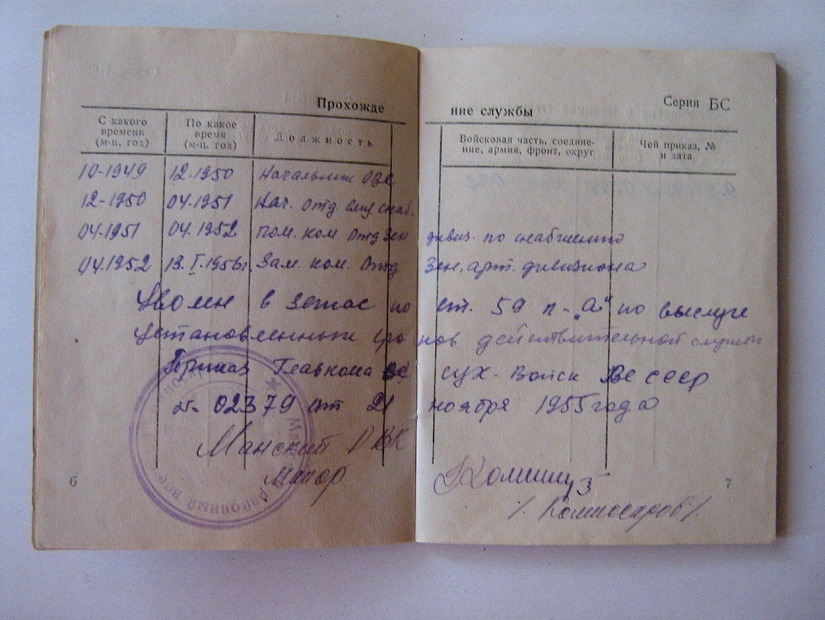 Серия БС
Прохожде ние службы
С какого времени (м-ц, год)
По какое время (м-ц, год)
Должность
Войсковая часть, соедине-
ние, армия, фронт, округ
Чей приказ, №
и дата
10-1949 12-1950 Начальник ОВС
12-1950 04.1951 Нач. отд. снаб.
04.1951 04.1952 пом. ком отд зен дивиз. по снабжению
04.1952 13.I.1956г. Зам. ком. отд зен. арт. дивизиона
Уволен в запас по ст. 59 п-„а" по выслуге
установленных сроков действительной службы
Приказ Главкома сух-войск СССР
№ 02379 от 21 ноября 1955 года
Манский РВК
майор
/Комиссаров/
районный
6
7